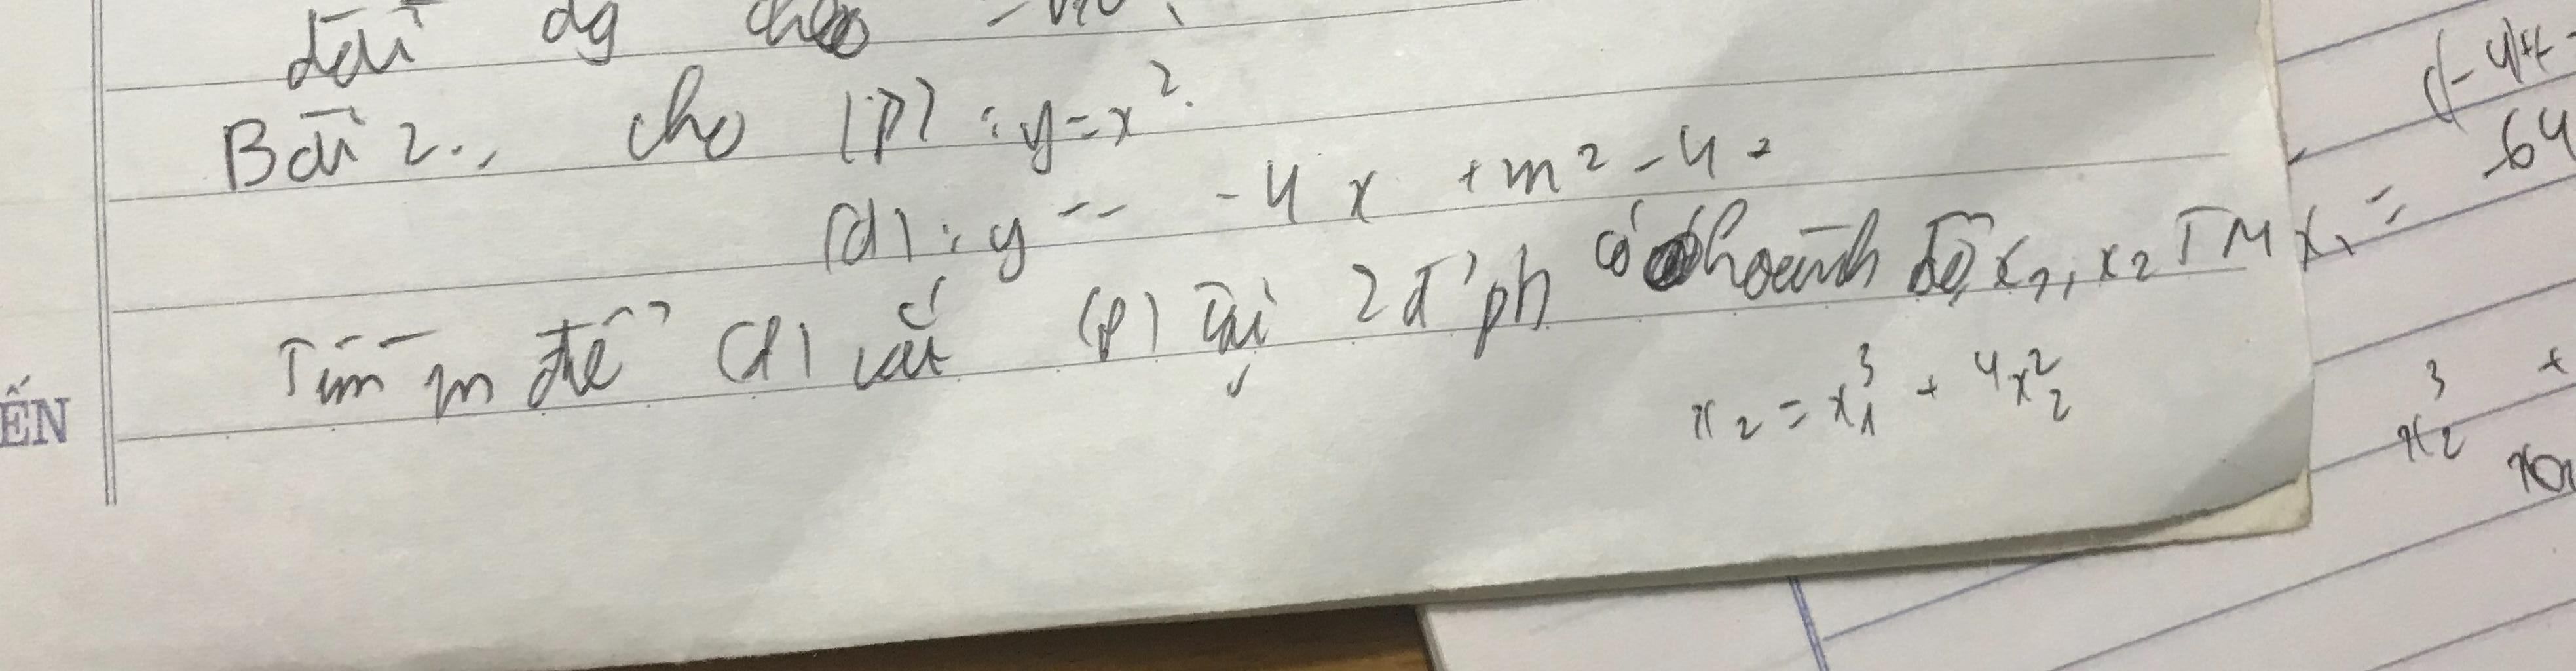 dài dg cho
Bài 2., cho (P) : y = x².
(d) : y = -4x + m² - 4.
Tìm m để (d) cắt (P) tại 2 đ' pb có hoành độ x₁, x₂ TM x₁ =
x₂ = x₁³ + 4x₂²
ẾN
(-4)
64
x₂³ +